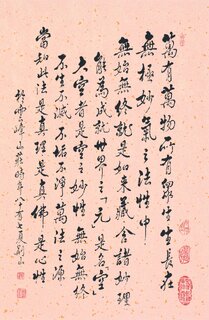 萬有萬物所有眾生生長在
無極妙氣之法性中
無始無終就是如來藏含諸妙理
能為成就世界之「元」是名空
大空者是空之妙性無始無終
不生不滅不垢不淨萬法之源
當知此法是真理是真佛是心性
於雲峰山莊時年八十有七夏